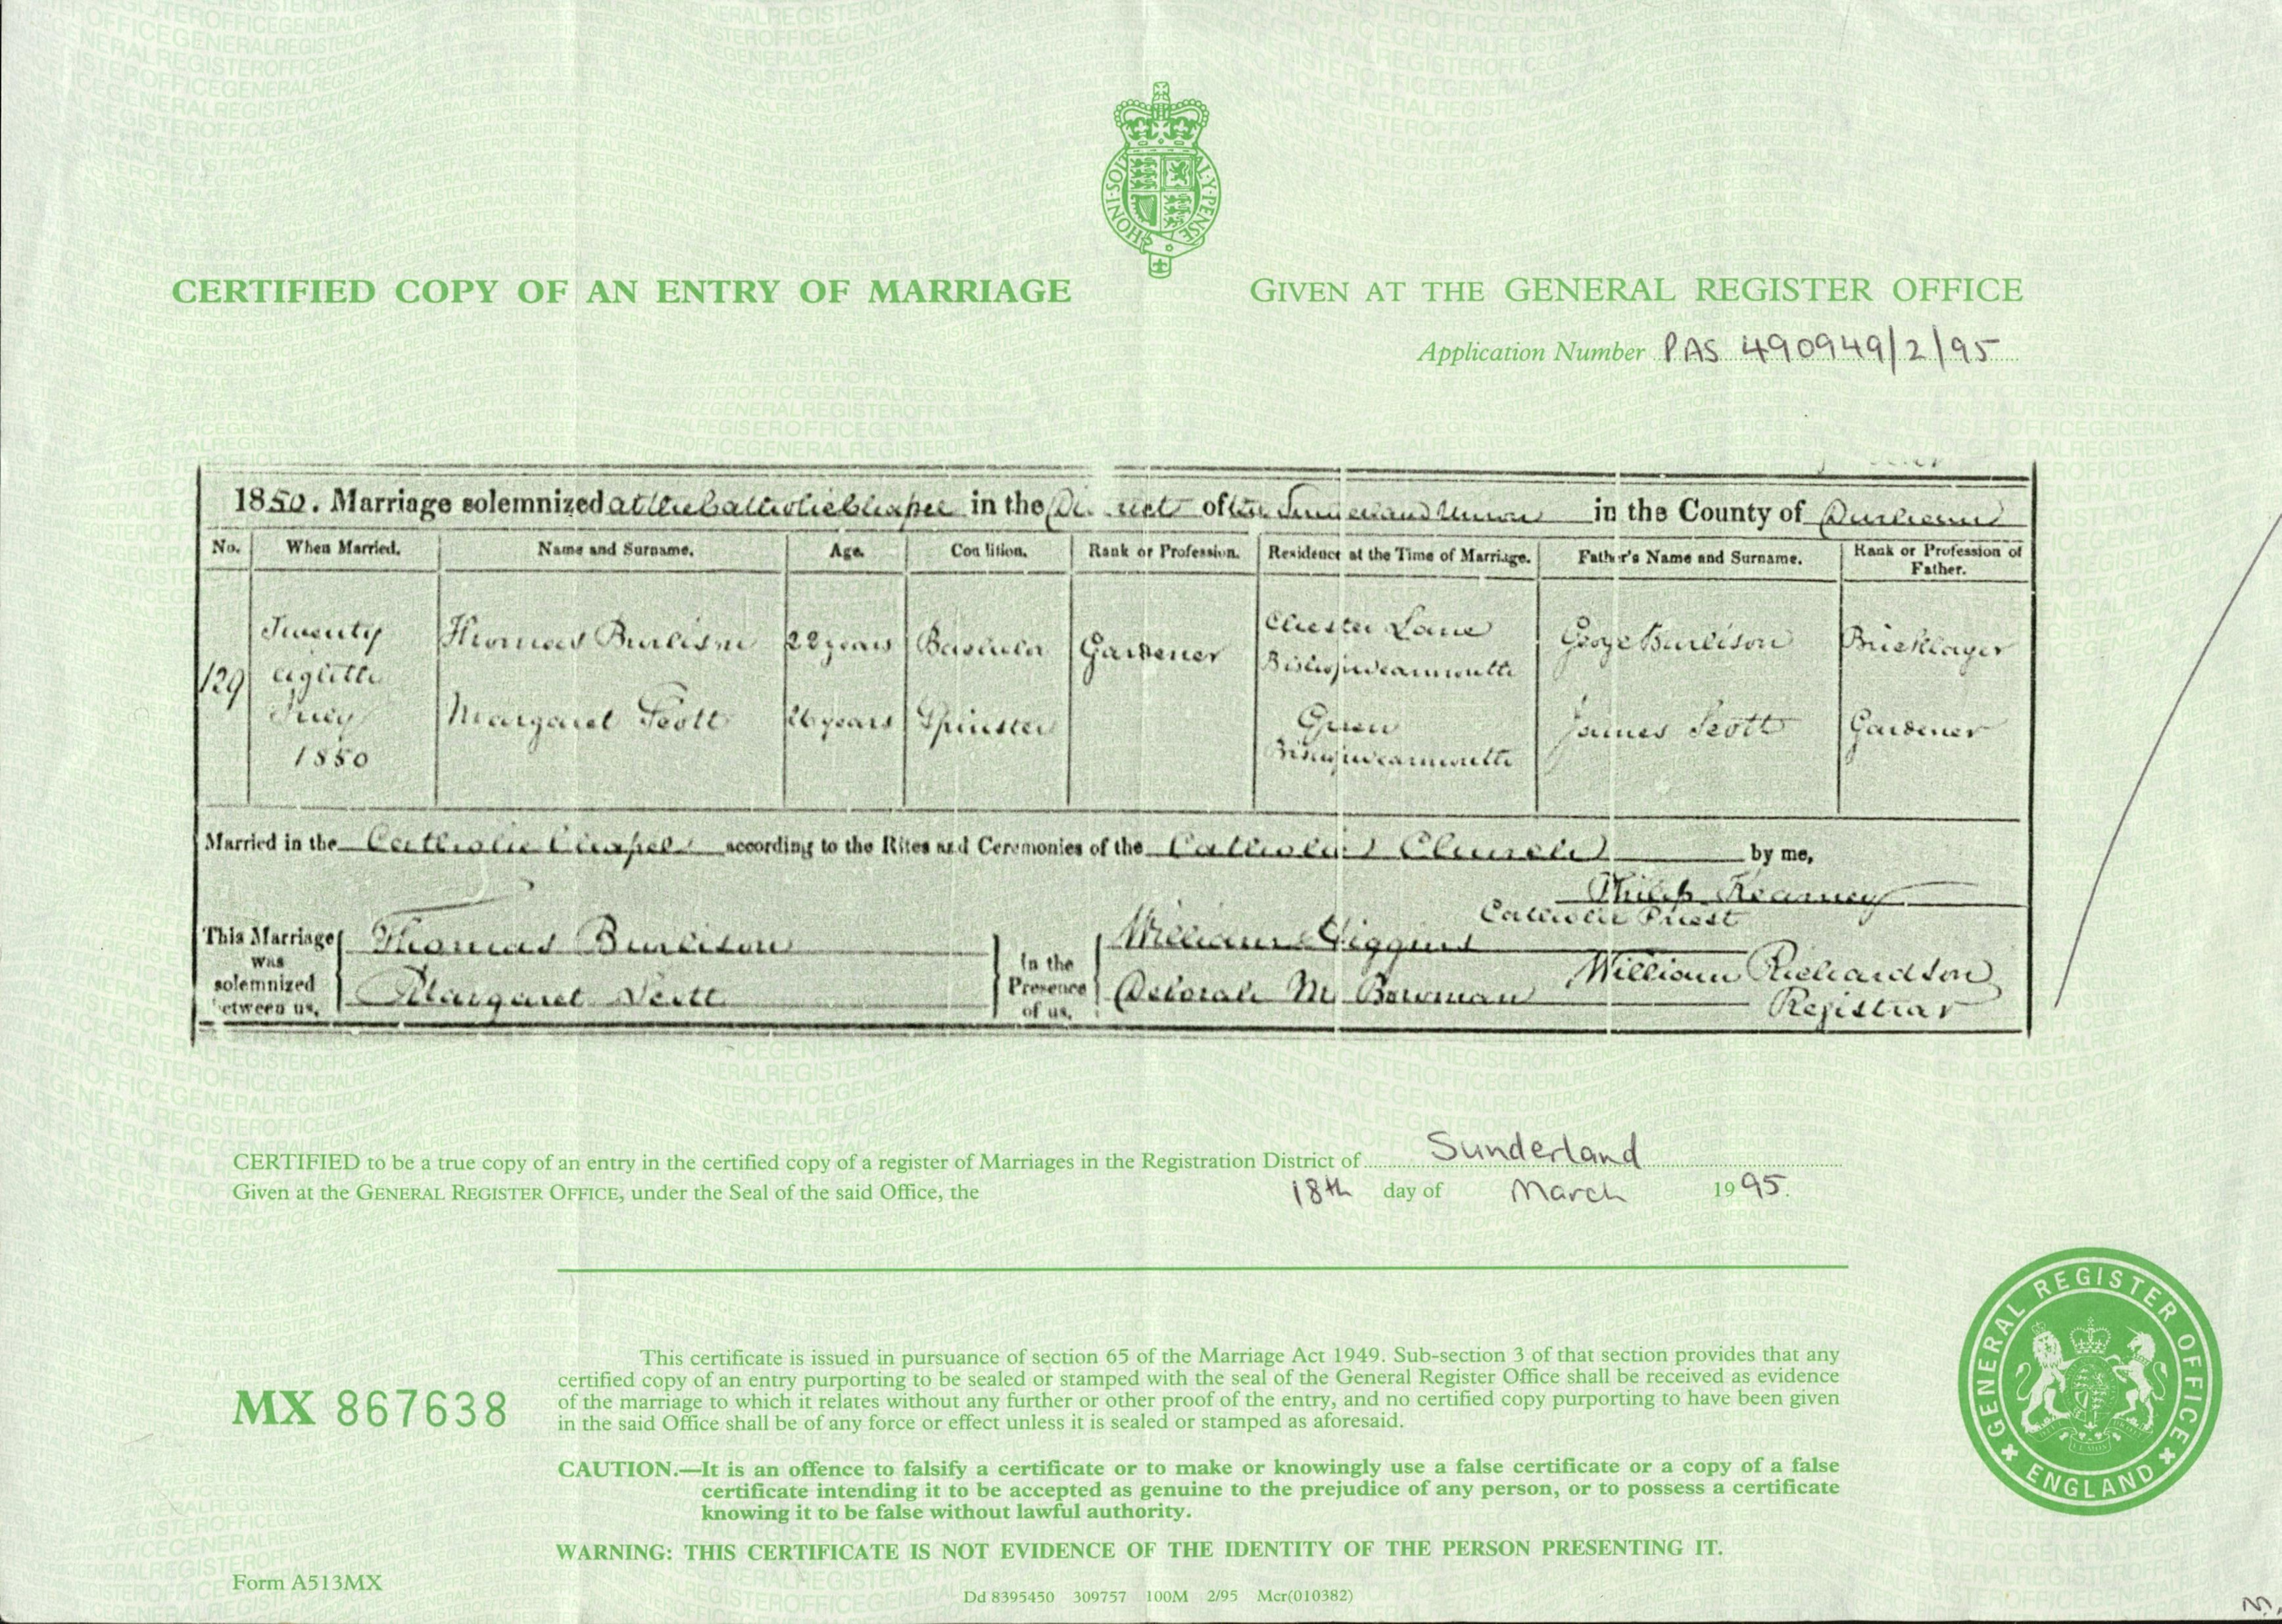 HONI·SOIT AL·Y·PENSE
CERTIFIED COPY OF AN ENTRY OF MARRIAGE
GIVEN AT THE GENERAL REGISTER OFFICE
Application Number PAS 490949/2/95
1850. Marriage solemnized at the Catholic Chapel in the District of the Sunderland Union in the County of Durham
No. When Married. Name and Surname. Age. Con lition. Rank or Profession. Residence at the Time of Marriage. Father's Name and Surname. Rank or Profession of Father.
129 Twenty eighth July 1850 Thomas Burlison 22 years Bachelor Gardener Chester Lane Bishopwearmouth George Burlison Bricklayer
Margaret Scott 26 years Spinster Green Bishopwearmouth James Scott Gardener
Married in the Catholic Chapel according to the Rites and Ceremonies of the Catholic Church by me,
Philip Kearney
Catholic Priest
This Marriage was solemnized etween us, Thomas Burlison Margaret Scott In the Presence of us, William Higgins Deborah M Bowman
William Richardson
Registrar
CERTIFIED to be a true copy of an entry in the certified copy of a register of Marriages in the Registration District of Sunderland
Given at the GENERAL REGISTER OFFICE, under the Seal of the said Office, the 18th day of March 1995.
MX 867638
This certificate is issued in pursuance of section 65 of the Marriage Act 1949. Sub-section 3 of that section provides that any
certified copy of an entry purporting to be sealed or stamped with the seal of the General Register Office shall be received as evidence
of the marriage to which it relates without any further or other proof of the entry, and no certified copy purporting to have been given
in the said Office shall be of any force or effect unless it is sealed or stamped as aforesaid.
CAUTION.—It is an offence to falsify a certificate or to make or knowingly use a false certificate or a copy of a false
certificate intending it to be accepted as genuine to the prejudice of any person, or to possess a certificate
knowing it to be false without lawful authority.
WARNING: THIS CERTIFICATE IS NOT EVIDENCE OF THE IDENTITY OF THE PERSON PRESENTING IT.
GENERAL REGISTER OFFICE
ENGLAND
Form A513MX
Dd 8395450 309757 100M 2/95 Mcr(010382)